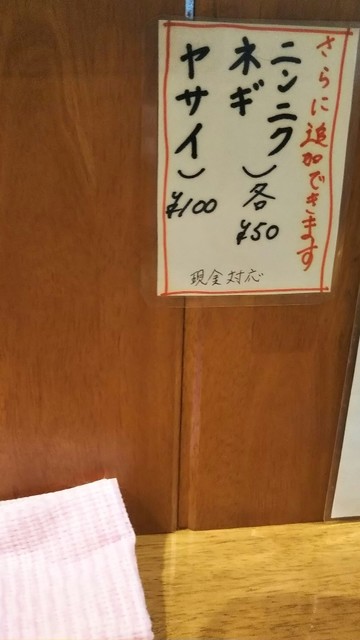 さらに追加できます
ニンニク
ネギ
)各
¥50
ヤサイ)
¥100
現金対応